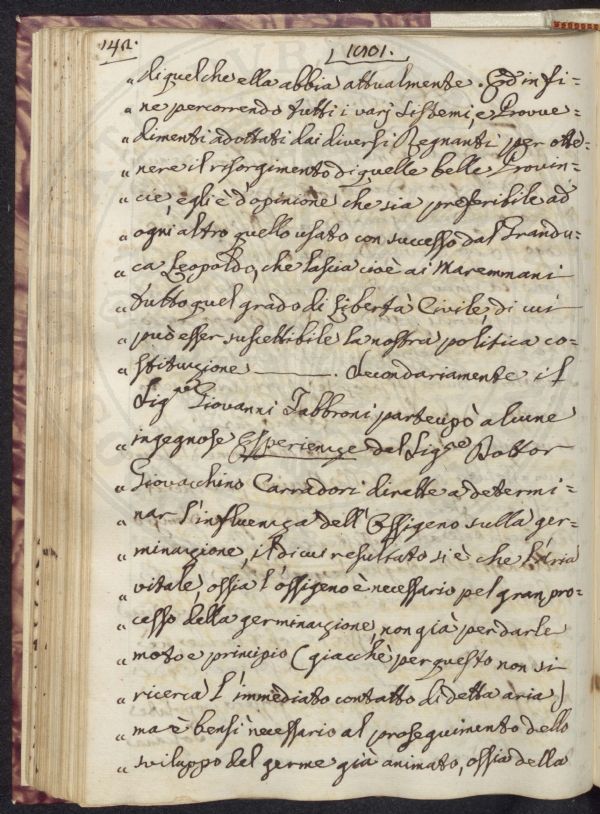 142.
1801.
„ di quel che ella abbia attualmente. Ed in fi=
„ ne percorrendo tutti i varj sistemi, e Provve=
„ dimenti adottati dai diversi Regnanti per otte=
„ nere il risorgimento di quelle belle Provin=
„ cie, egli è d'opinione che sia preferibile ad
„ ogni altro quello usato con successo dal Grandu=
„ ca Leopoldo, che lascia cioè ai Maremmani
„ tutto quel grado di Libertà Civile di cui
„ può esser suscettibile la nostra politica co=
„ stituzione ———. Secondariamente il
Sig.re Giovanni Fabbroni partecipò alcune
„ ingegnose Esperienze del Sig.re Dottor
„ Giovacchino Carradori dirette a determi=
„ nar l'influenza dell'Ossigeno sulla ger=
„ minazione, il di cui resultato si è che l'aria
„ vitale, ossia l'ossigeno è necessario pel gran pro=
„ cesso della germinazione, non già per darle
„ moto e principio (giacchè per questo non si
„ ricerca l'immediato contatto di detta aria)
„ ma è bensì necessario al proseguimento dello
„ sviluppo del germe già animato, ossia della